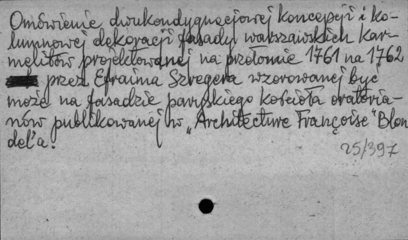 Omówienie dwukondygnacejowej koncepcji i ko-
lumnowej dekoracji fasady warszawskich kar-
melitów projektowanej na przełomie 1761 na 1762
przez Efraima Szregera wzorowanej być
może na fasadzie paryskiego kościoła oratoria-
nów publikowanej w „Architecture Françoise" Blon
del'a.
25/397